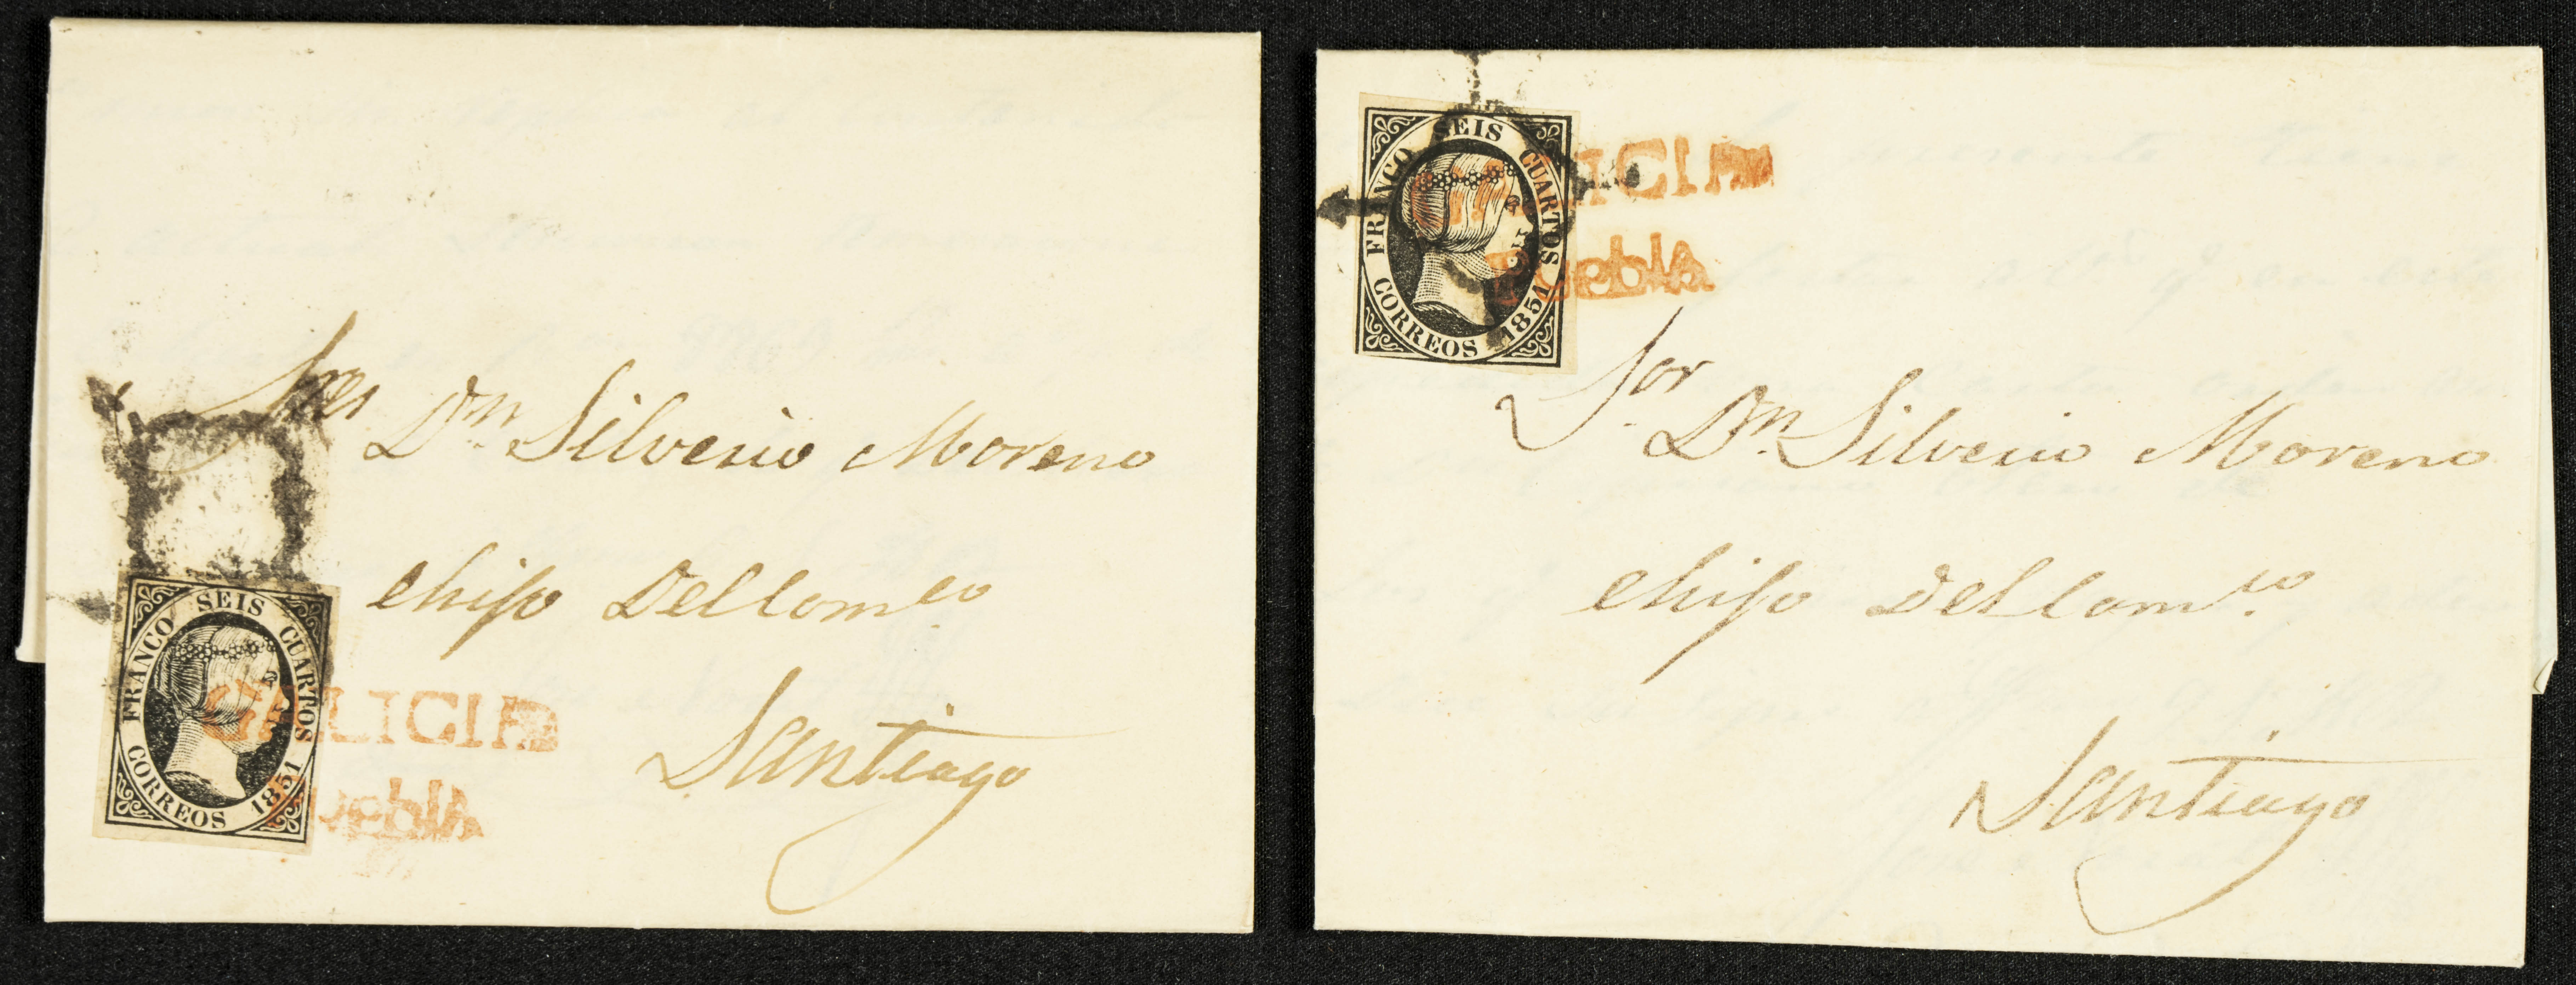 Sres
Dn Silverio Moreno
é hijo Del Comcio
Santiago
FRANCO SEIS CUARTOS
CORREOS 1851
GALICIA
PueblA
FRANCO SEIS CUARTOS
CORREOS 1851
GALICIA
PueblA
Sor
Dn Silverio Moreno
é hijo Del Comcio
Santiago